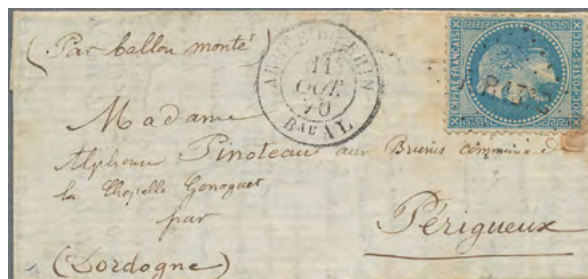 (Par ballon monté)
11
OCT.
70
Bau AL
EMPIRE FRANÇAIS
Madame
Alphonse Pinoteau aux Brunis commune de
la Chapelle Gonaguet
par
Périgueux
(Dordogne)